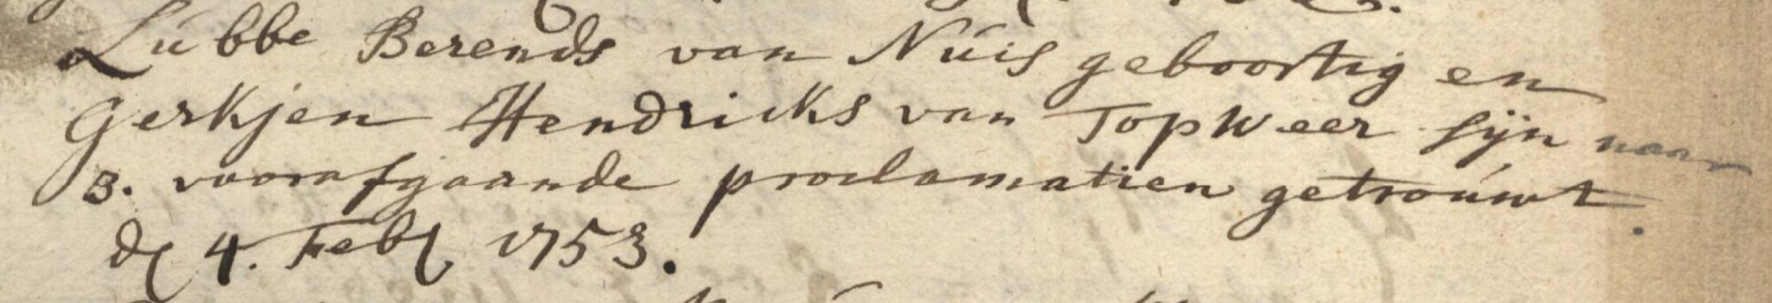 Lubbe Berends van Nuis geboortig en
Gerkjen Hendricks van Topweer sijn naar
3. voorafgaande proclamatien getrouwt.
d 4. Feb 1753.